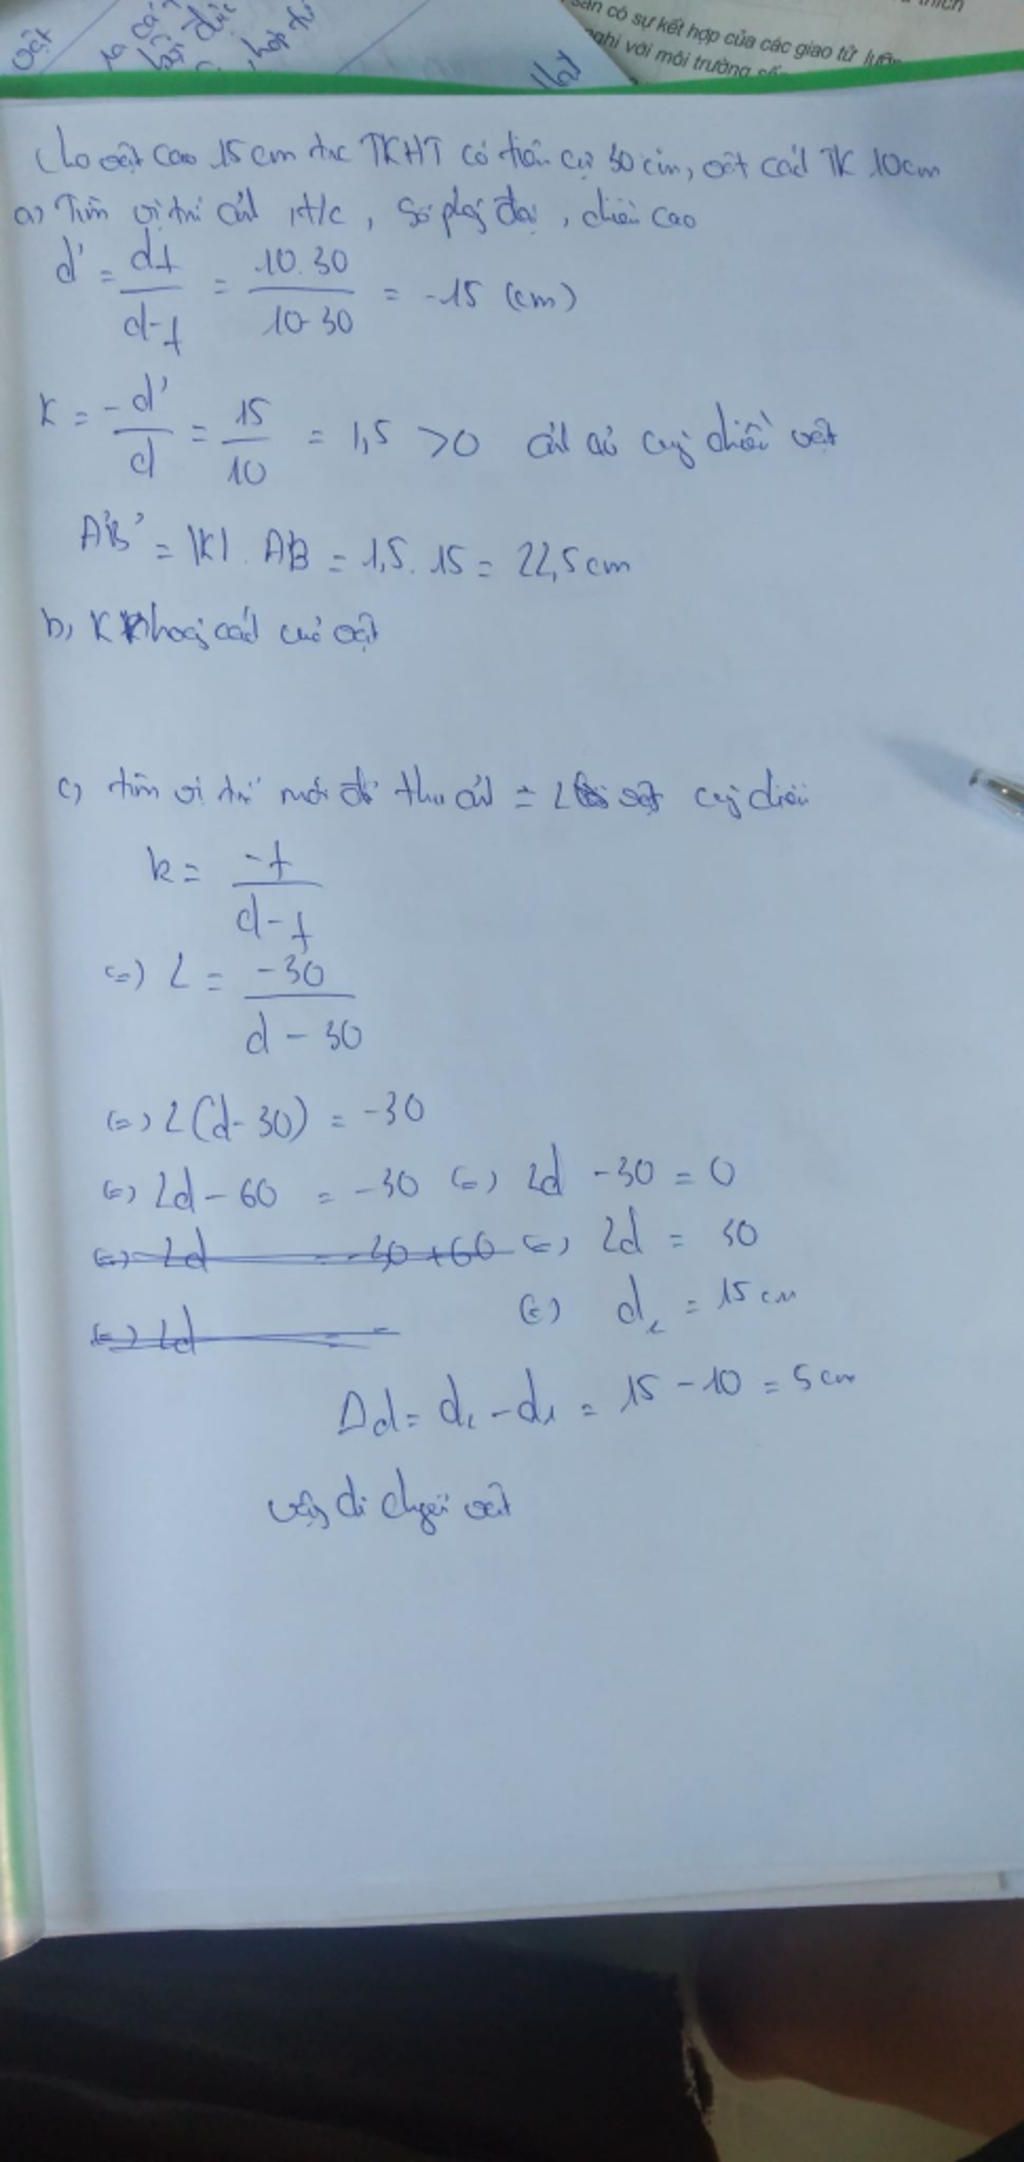 sản có sự kết hợp của các giao tử
nghi với môi trường
vật
Cho vật cao 15cm trc TKHT có tiêu cự 30cm, vật cách TK 10cm
a) Tìm vị trí ảnh, t/c, số phóng đại, chiều cao
d' = df / d-f = 10.30 / 10-30 = -15 (cm)
K = -d' / d = 15 / 10 = 1,5 >0 ảnh ảo cùng chiều vật
A'B' = |K|. AB = 1,5. 15 = 22,5cm
b, Khoảng cách của vật
c, tìm vị trí mới để thu ảnh = 2 vật cùng chiều
k = -f / d-f
(=) 2 = -30 / d - 30
(=) 2(d-30) = -30
(=) 2d - 60 = -30 (=) 2d - 30 = 0
(=) 2d -30+60 (=) 2d = 30
(=) 2d (=) d₂ = 15cm
Δd = d₂ - d₁ = 15 - 10 = 5cm
vậy di chuyển vật